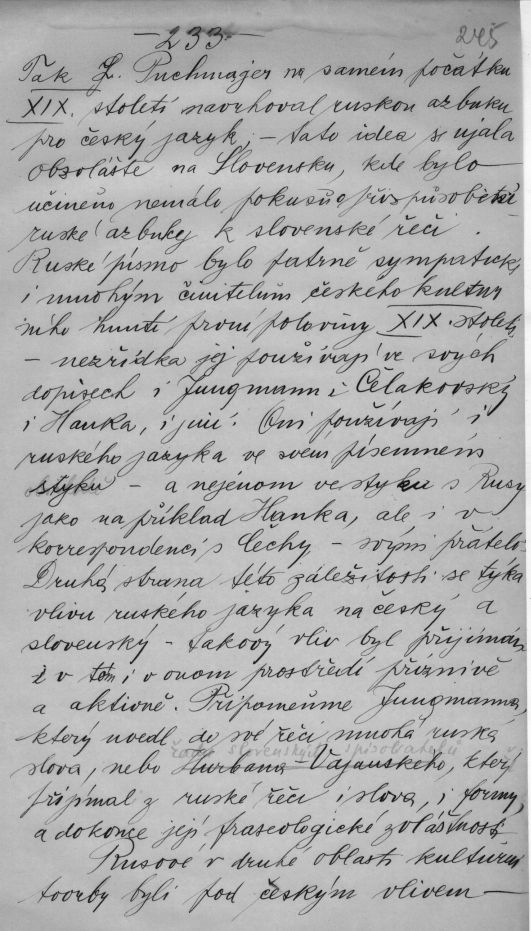 -233-
245
Tak J. Puchmajer na samém počátku
XIX. století navrhoval ruskou azbuku
pro český jazyk, - tato idea se ujala
obzvláště na Slovensku, kde bylo
učiněno nemálo pokusů o přizpůsobení
ruské azbuky k slovenské řeči.
Ruské písmo bylo patrně sympatické
i mnohým činitelům českého kultur
ního hnutí první poloviny XIX. století,
- nezřídka jej používají ve svých
dopisech i Jungmann i Čelakovský
i Hanka, i jiní. Oni používají i
ruského jazyka ve svém písemném
styku - a nejenom ve styku s Rusy
jako na příklad Hanka, ale i v
korrespondenci s Čechy - svými přáteli.
Druhá strana této záležitosti se týká
vlivu ruského jazyka na český a
slovenský - takový vliv byl přijímán
i v tom i v onom prostředí příznivě
a aktivně. Připomeňme Jungmanna,
který uvedl do své řeči mnohá ruská
řadu slovenských spisovatelů
slova, nebo Hurbana-Vajanského, který
přijímal z ruské řeči i slova, i formy,
a dokonce její fraseologické zvláštnosti.
Rusové v druhé oblasti kulturní
tvorby byli pod českým vlivem -